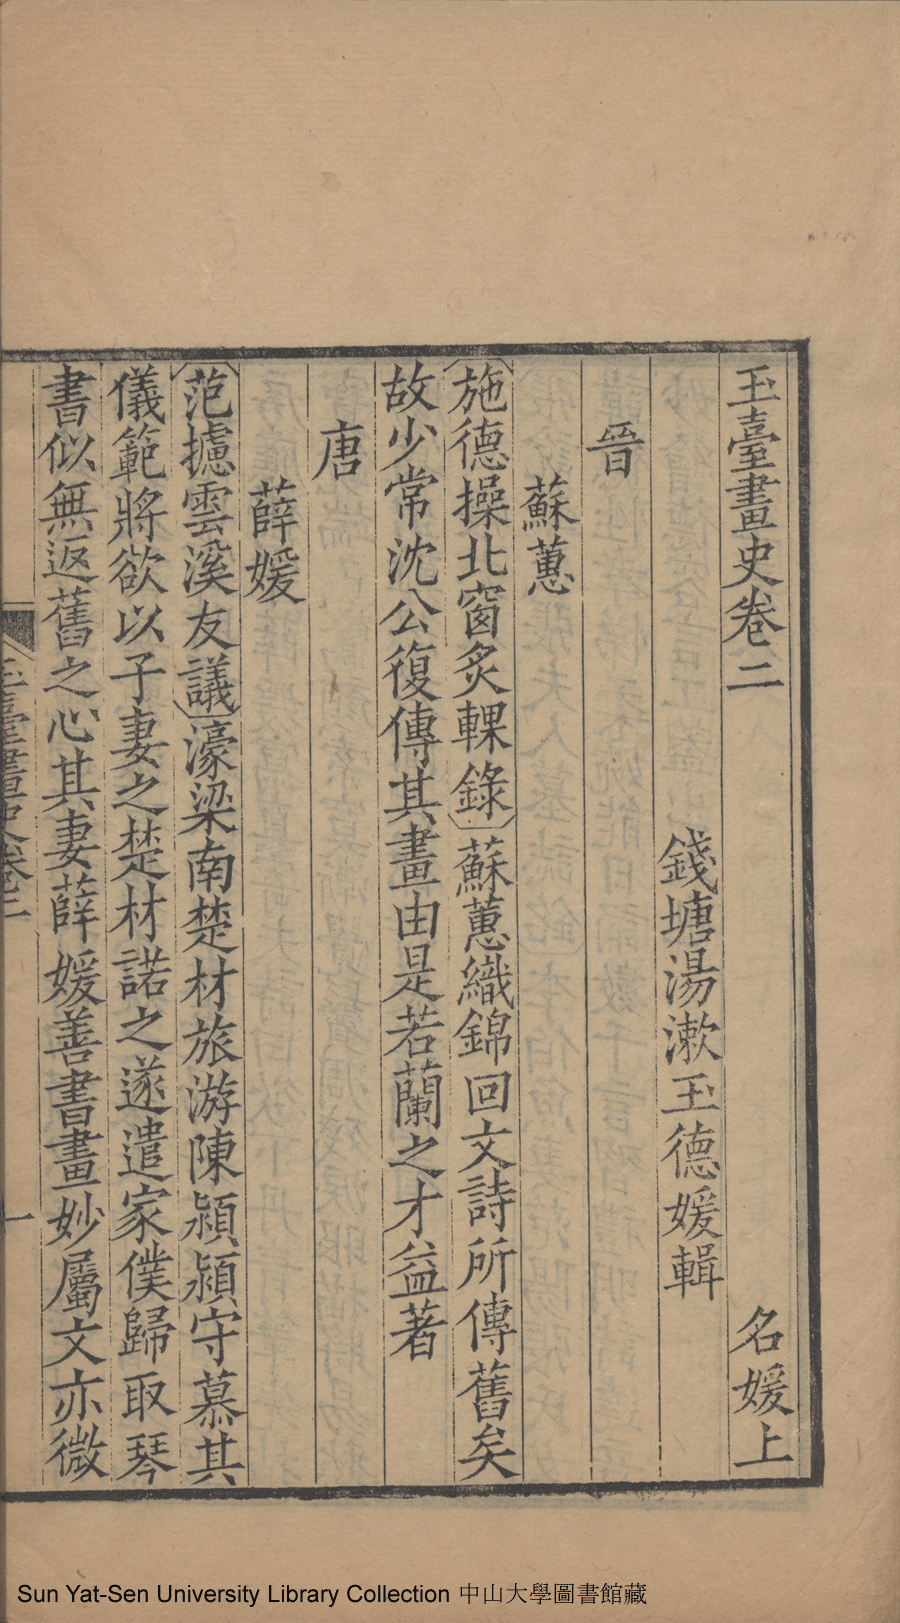 玉臺畫史卷二　名媛上
錢塘湯漱玉德媛輯
晉
蘇蕙
施德操北窗炙輠錄蘇蕙織錦回文詩所傳舊矣
故少常沈公復傳其畫由是若蘭之才益著
唐
薛媛
范攄雲溪友議濠梁南楚材旅游陳潁潁守慕其
儀範將欲以子妻之楚材諾之遂遣家僕歸取琴
書似無返舊之心其妻薛媛善書畫妙屬文亦微
玉臺畫史卷二　一
Sun Yat-Sen University Library Collection 中山大學圖書館藏